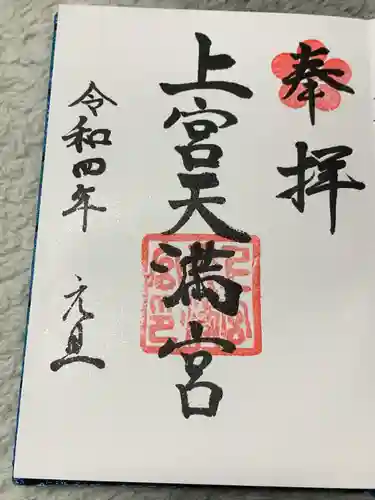 奉拝
上宮天満宮
令和四年 元旦